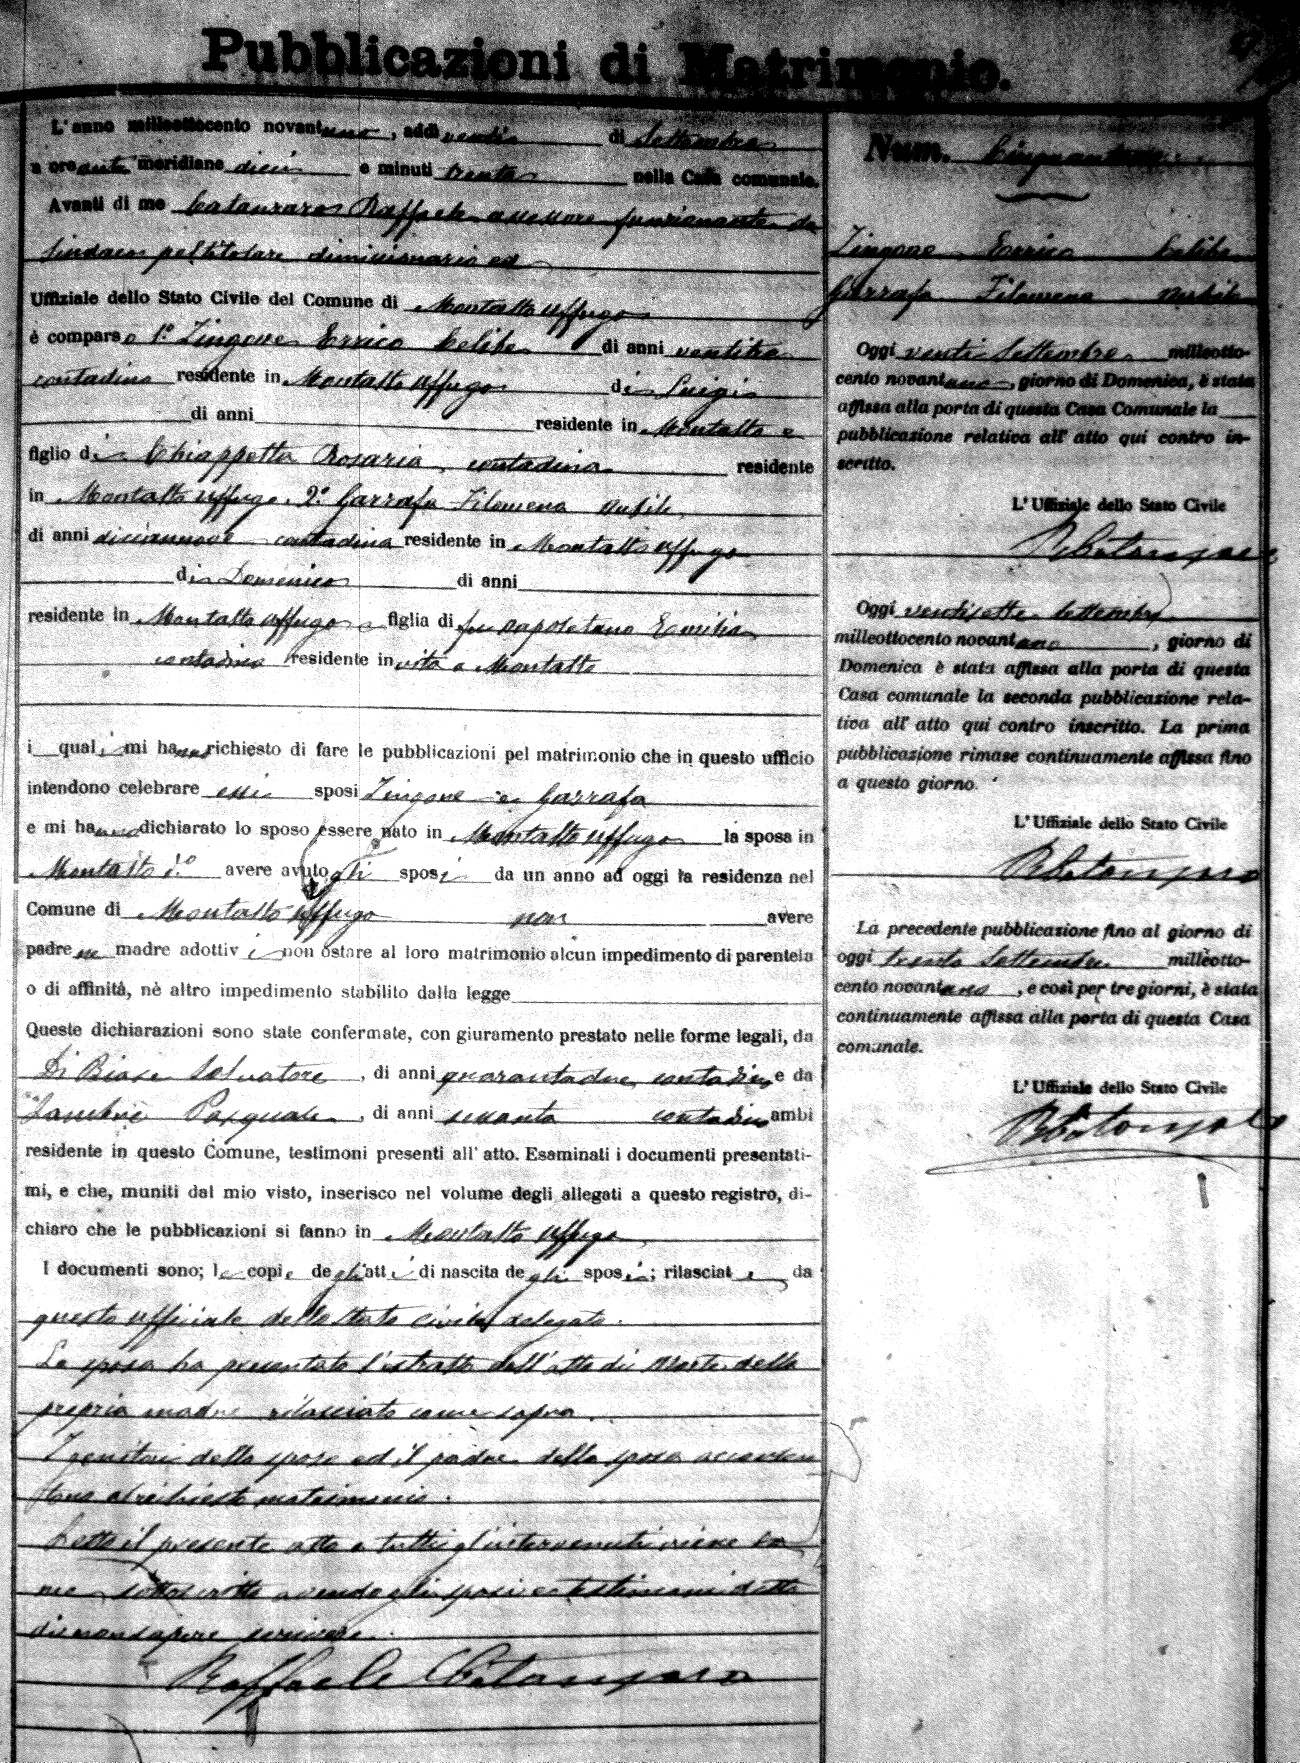 Pubblicazioni di Matrimonio.
L'anno milleottocento novantuno, addì venti di Settembre
a ore anti meridiane dieci e minuti trenta nella Casa comunale.
Avanti di me Catanzaro Raffaele assessore funzionante da
Sindaco pel titolare dimissionario ed
Uffiziale dello Stato Civile del Comune di Montalto Uffugo
è comparso 1.° Zingone Errico celibe di anni ventitre
contadino residente in Montalto Uffugo di Luigi
di anni residente in Montalto e
figlio di Chiappetta Rosaria, contadina residente
in Montalto Uffugo. 2.° Garrafa Filomena nubile,
di anni diciannove contadina residente in Montalto Uffugo
di Domenico di anni
residente in Montalto Uffugo e figlia di fu Napoletano Emilia
contadina residente in vita a Montalto
i quali mi hanno richiesto di fare le pubblicazioni pel matrimonio che in questo ufficio
intendono celebrare essi sposi Zingone e Garrafa
e mi hanno dichiarato lo sposo essere nato in Montalto Uffugo la sposa in
Montalto avere avuto gli sposi da un anno ad oggi la residenza nel
Comune di Montalto Uffugo non avere
padre ne madre adottivi non ostare al loro matrimonio alcun impedimento di parentela
o di affinità, nè altro impedimento stabilito dalla legge
Queste dichiarazioni sono state confermate, con giuramento prestato nelle forme legali, da
Di Biase Salvatore, di anni quarantadue contadino e da
Pasquale, di anni sessanta contadino ambi
residente in questo Comune, testimoni presenti all' atto. Esaminati i documenti presentati-
mi, e che, muniti dal mio visto, inserisco nel volume degli allegati a questo registro, di-
chiaro che le pubblicazioni si fanno in Montalto Uffugo
I documenti sono; le copie degli atti di nascita degli sposi; rilasciate da
questo ufficiale dello stato civile delegato.
La sposa ha presentato l'estratto dell'atto di morte della
propria madre rilasciato come sopra.
I genitori dello sposo ed il padre della sposa acconsen
tono al richiesto matrimonio.
Letto il presente atto a tutti gl'intervenuti viene da
me sottoscritto avendo gli sposi e testimoni detto
di non sapere scrivere.
Raffaele Catanzaro
Num. Cinquantuno
Zingone Errico celibe
Garrafa Filomena nubile
Oggi venti Settembre milleotto-
cento novantuno, giorno di Domenica, è stata
affissa alla porta di questa Casa Comunale la
pubblicazione relativa all' atto qui contro in-
scritto.
L'Uffiziale dello Stato Civile
R Catanzaro
Oggi ventisette Settembre
milleottocento novantuno, giorno di
Domenica è stata affissa alla porta di questa
Casa comunale la seconda pubblicazione rela-
tiva all' atto qui contro inscritto. La prima
pubblicazione rimase continuamente affissa fino
a questo giorno.
L'Uffiziale dello Stato Civile
R Catanzaro
La precedente pubblicazione fino al giorno di
oggi trenta Settembre milleotto-
cento novantuno, e così per tre giorni, è stata
continuamente affissa alla porta di questa Casa
comunale.
L'Uffiziale dello Stato Civile
R Catanzaro